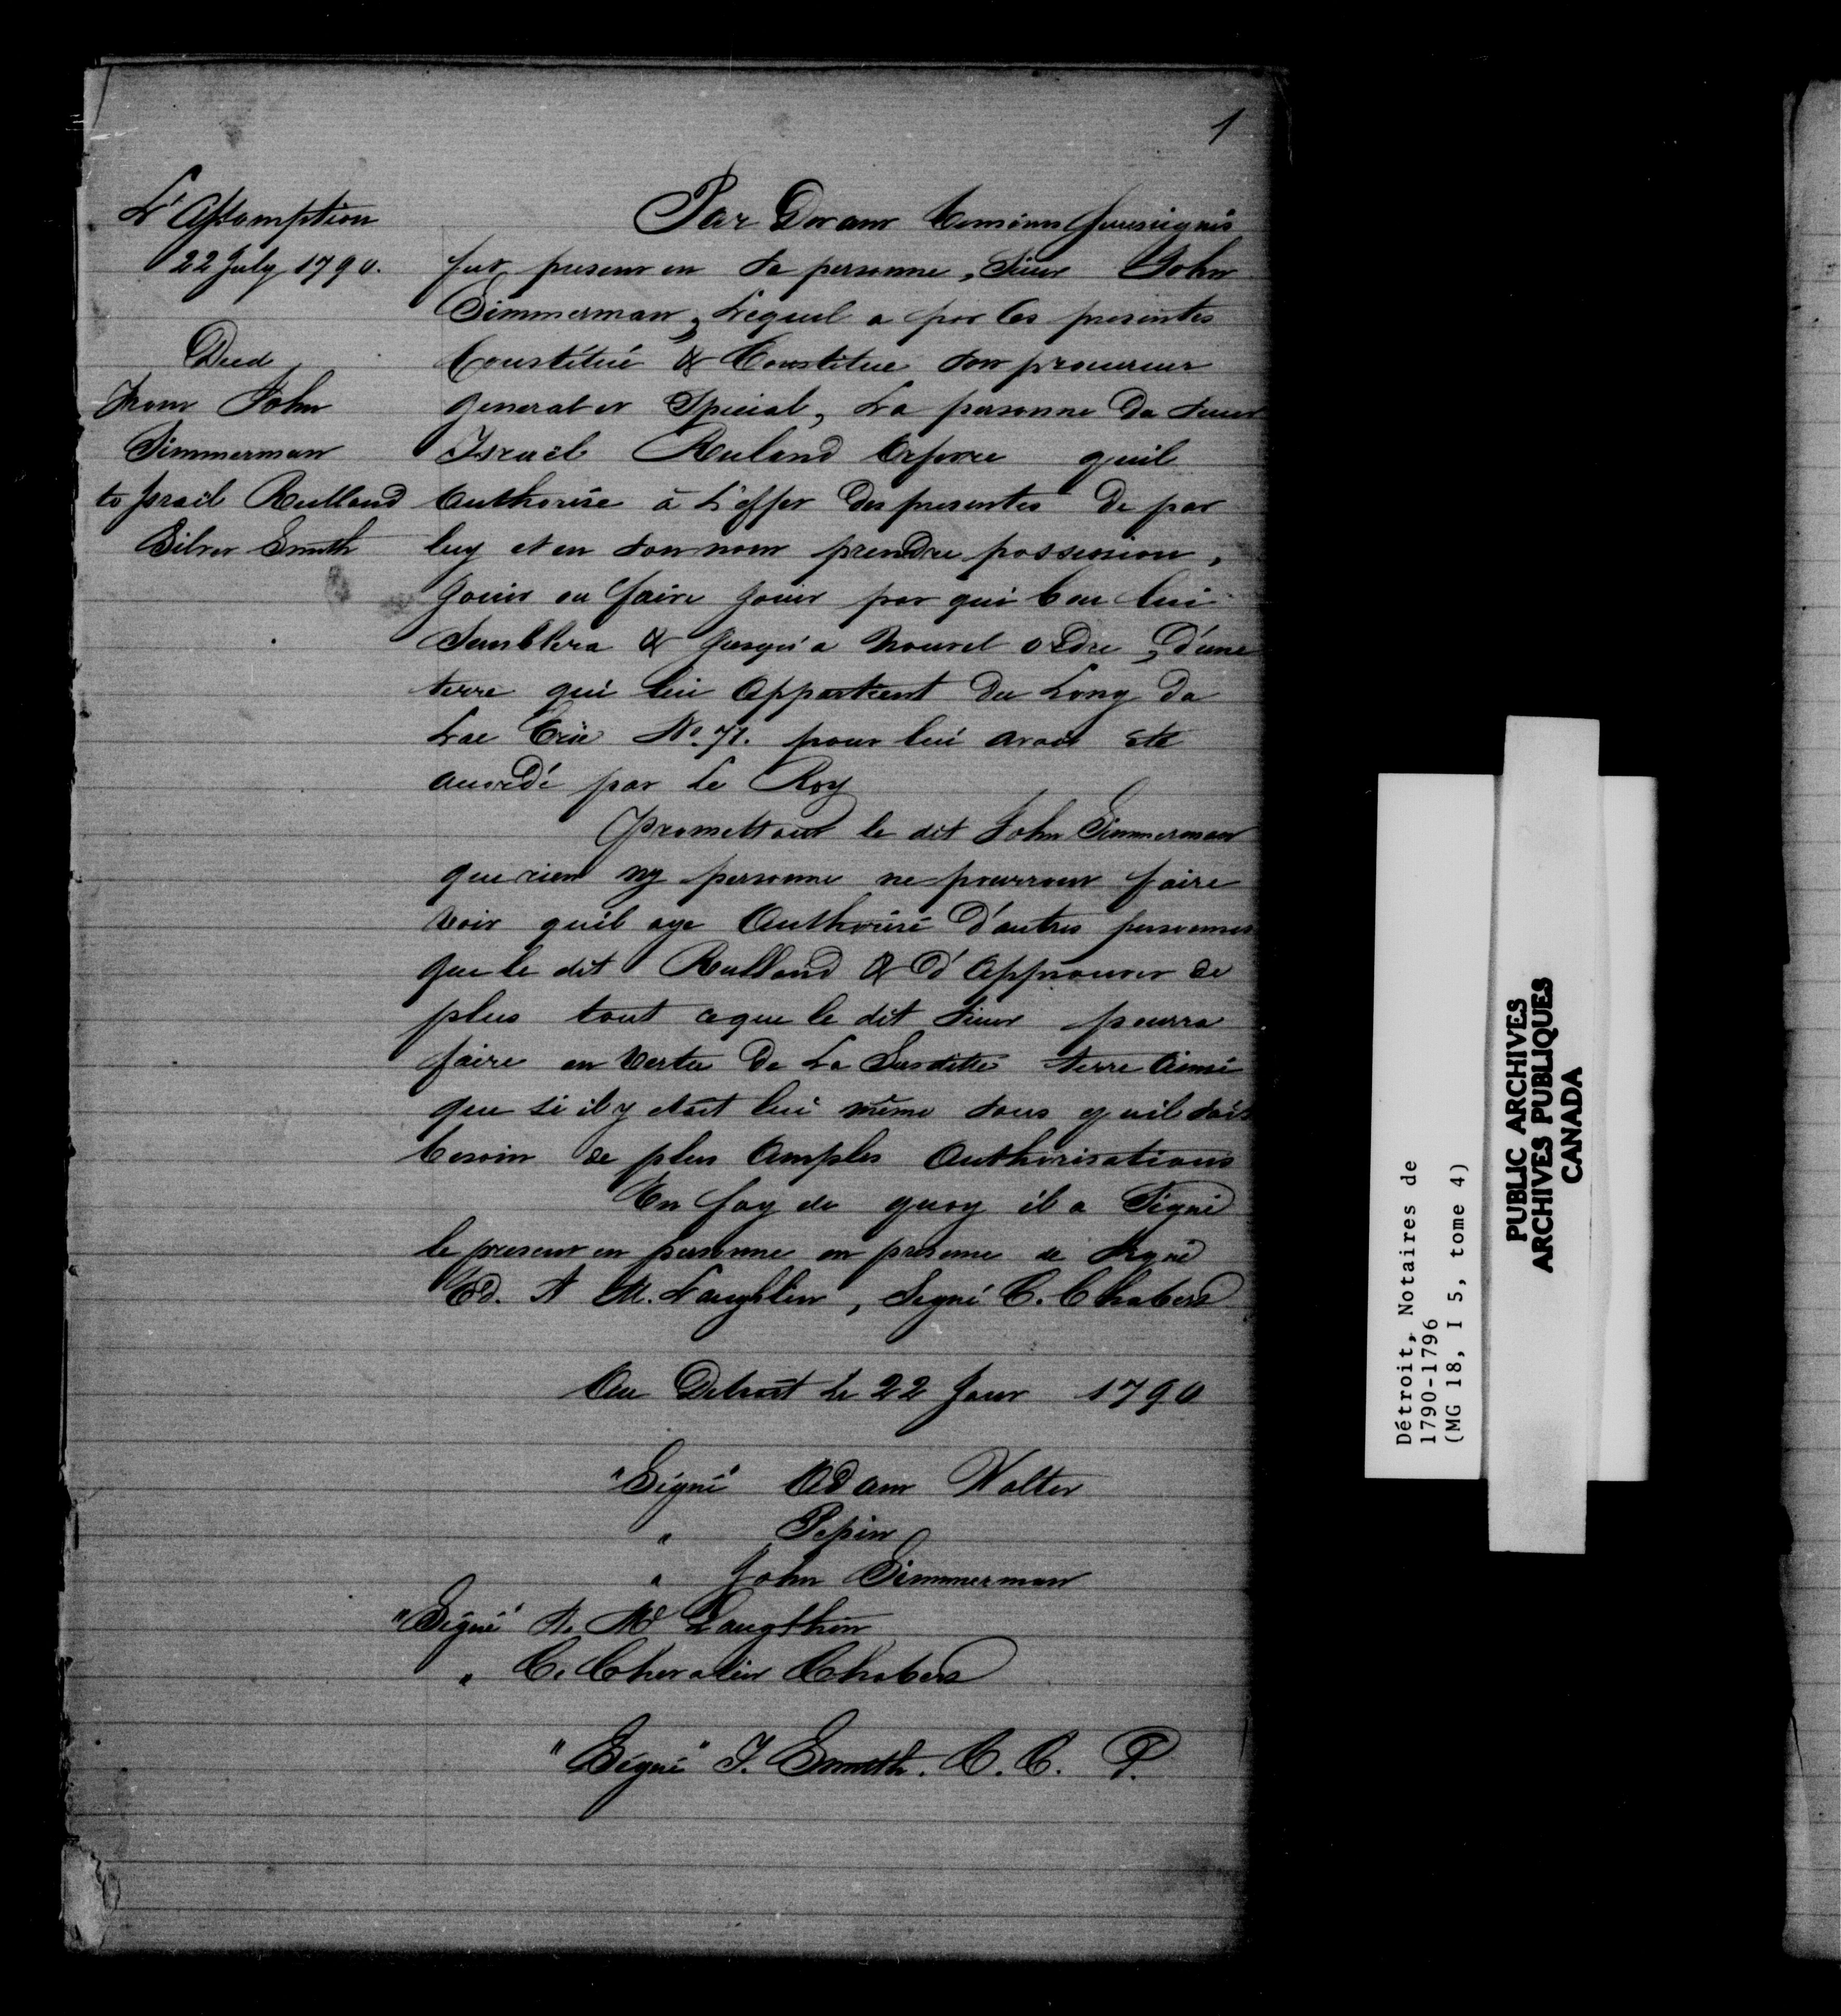 1
L'Assomption
22 July 1790.
Deed
From John
Simmerman
to Israël Rulland
Silver Smith
Par Devant temoins soussignés
fut present en sa personne, Sieur John
Simmerman, Lequel a par les presentes
Constitué & Constitue son procureur
general et Special, La personne du Sieur
Israël Ruland Orfevre quil
authorise à L'effet des presentes de par
luy et en son nom prendre possession,
Jouir ou faire jouir par qui bon lui
Semblera & Jusqu'a Nouvel ordre, d'une
terre qui lui Appartient du Long du
Lac Erié No. 71. pour lui avoir été
accordé par Le Roy
Promettant le dit John Simmerman
que rien ny personne ne pourront faire
Voir quil aye Authorisé D'autres personnes
que le dit Rulland & D'Approuver de
plus tout ce que le dit Sieur pourra
faire en Vertu De La Susditte terre Ainsi
que si il y etait lui même sans quil soit
besoin de plus Amples Authorisations
En foy de quoy il a Signé
le present en personne en presence de Signé
Ed. A M. Laughlin, Signé C. Chabers
Au Detroit Le 22 Jour 1790
"Signé" Adam Walter
" Pepin
" John Simmerman
"Signé" A. Mc Laugthin
" C. Chevalier Chabers
"Signé" T. Smith. C. C. P.
Détroit, Notaires de
1790-1796
(MG 18, I 5, tome 4)
PUBLIC ARCHIVES
ARCHIVES PUBLIQUES
CANADA